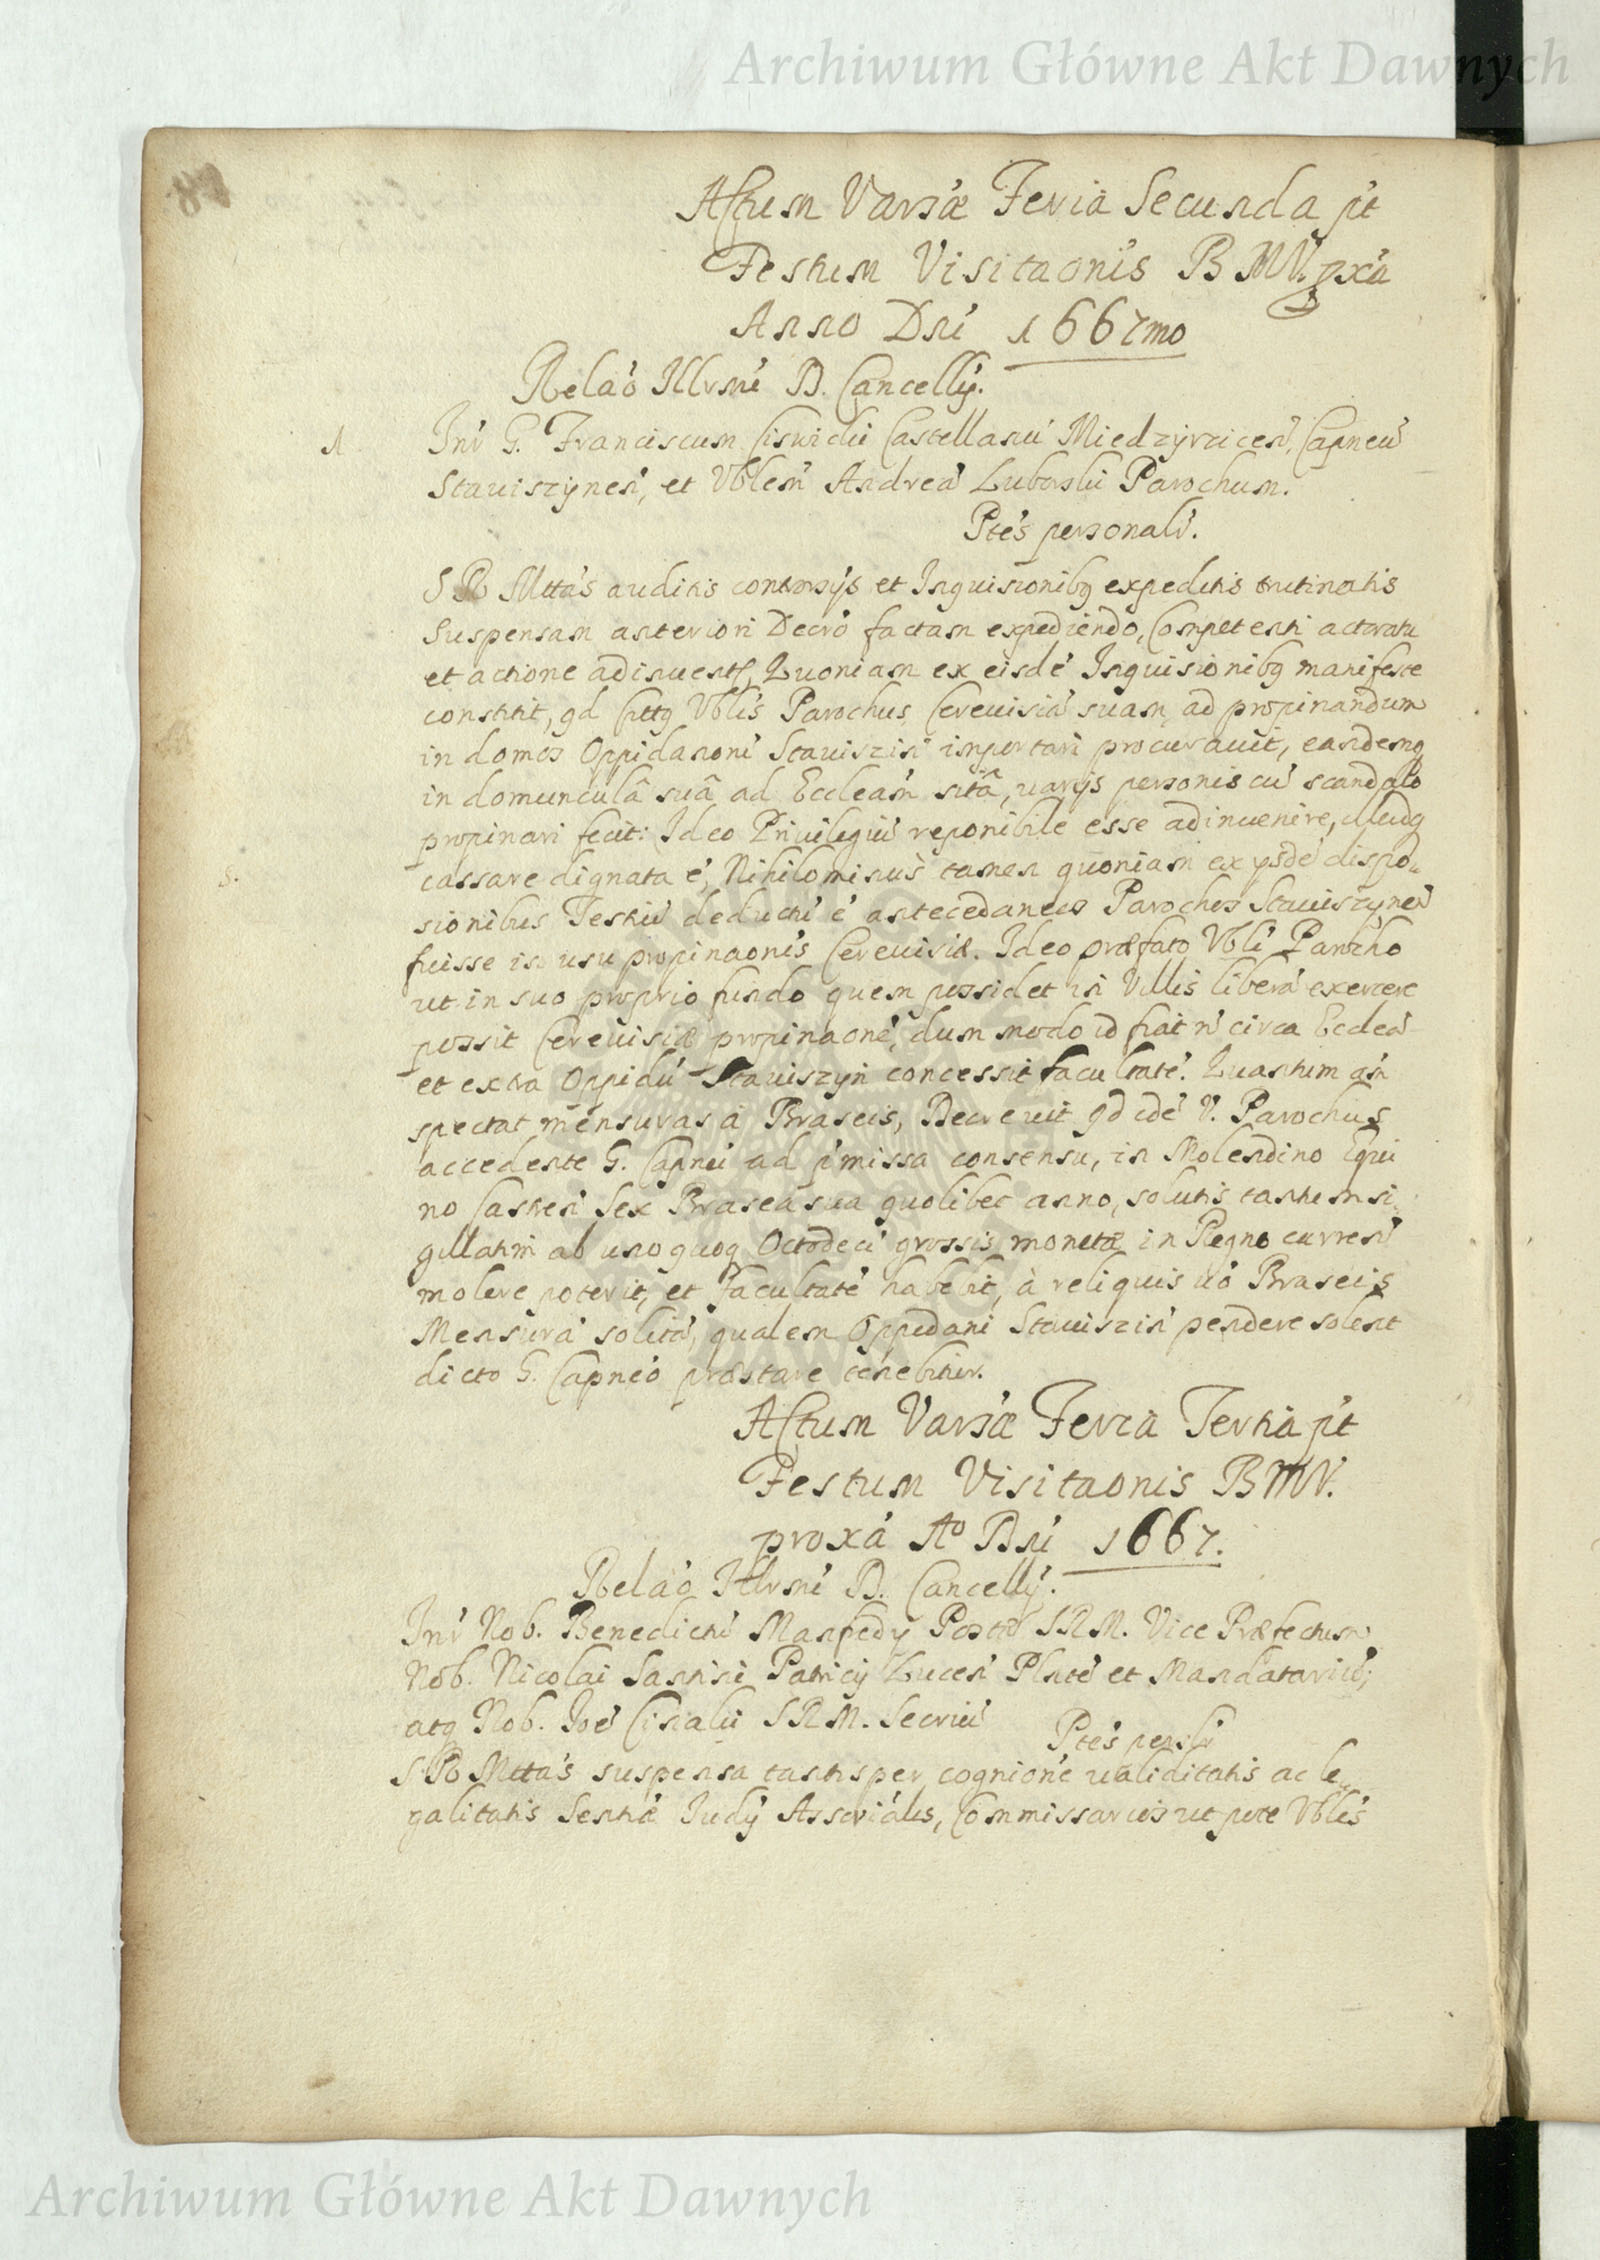 Archiwum Główne Akt Dawnych
Actum Varsae Feria Secunda pt
Festum Visitaonis BMV. pxa
Anno Dni 1667mo
Relao Illrmi D. Cancellÿ.
1. Int G. Franciscum Castellanu Miedzyrzicen, Capneu
Stawiszynen, et Vblem Andrea Parochum.
Ptes personalr.
S R Mttas auditis controvsÿs et Inquisionibq expeditis trutinatis
Suspensam anteriori Decro factam expediendo, Competenti actoratu
et actione adinvent, Quoniam ex eisde Inquisionibq manifeste
constitit, qd Vblis Parochus Cerevisia suam ad propinandum
in domos Oppidanoru Stawiszin importari procuravit, eandemq
in domuncula sua ad Eccleam sita, varÿs personis cu scandalo
propinari fecit: Ideo Privilegiu reponibile esse adinvenire,
cassare dignata e, Nihilominus tamen quoniam ex ÿsde dispo„
sionibus Testiu deductu e antecedaneos Parochos Stawiszynen
fuisse in usu propinaonis Cerevisiae. Ideo praefato Vbli Parocho
ut in suo proprio fundo quem possidet in Villis libera exercere
possit Cerevisiae propinaone, dum modo id fiat n circa Ecclea
et extra Oppidu Stawiszyn concessit facultate. Quantum an
spectat mensuras a Braseis, Decrevit qd ide V. Parochus
accedente G. Capnei ad pmissa consensu, in Molendino Equi
no Castren Sex Brasea sua quolibet anno, solutis tantum si„
gillatim ab uno quoq Octodeci grossis monetae in Regno curren
molere poterit, et facultate habebit, à reliquis vo Braseis
Mensura solita, qualem Oppidani Stawiszin pendere solent
dicto G. Capneo praestare tenebitur.
Actum Varsae Feria Tertia pt
Festum Visitaonis BMV.
proxa Ao Dni 1667.
Relao Illrmi D. Cancellÿ.
Int Nob. Benedictu Manfredy Postae SRM. Vice Praefectum
Nob. Nicolai Santini Patricÿ Lucen Plnte et Mandatariu,
atq Nob. Joe SRM. Secriu
Ptes perslr
S R Mttas suspensa tantisper cognione validitatis ac le„
galitatis Sentiae Judÿ Assoriális, Commissarios ut pote Vbles
Archiwum Główne Akt Dawnych